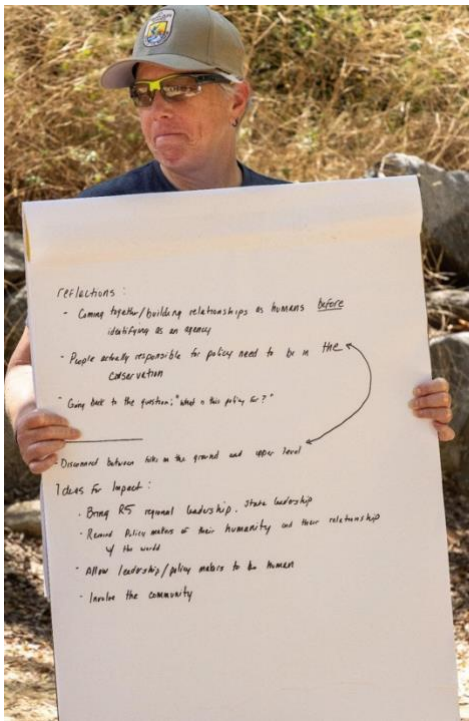 reflections:
- Coming together/building relationships as humans before
identifying as an agency
- People actually responsible for policy need to be in the
conservation
- Going back to the question; "What is this policy for?"
- Disconnect between folks on the ground and upper level
Ideas for Impact:
- Bring R5 regional leadership, State leadership
- Remind Policy makers of their humanity and their relationship
w/ the world
- Allow leadership/policy makers to be human
- Involve the community